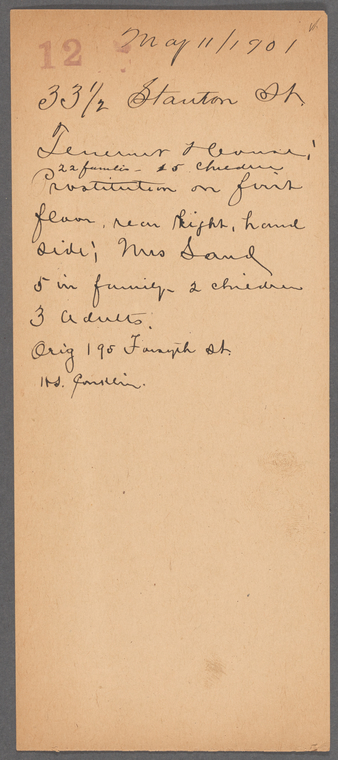 12
May 11/1901
33 1/2 Stanton St.
Tenement House;
22 families - 15 children
Prostitution on first
floor, rear right, hand
side; Mrs Sand
5 in family - 2 children
3 adults.
Orig 195 Forsyth St.
H.S. Conklin.